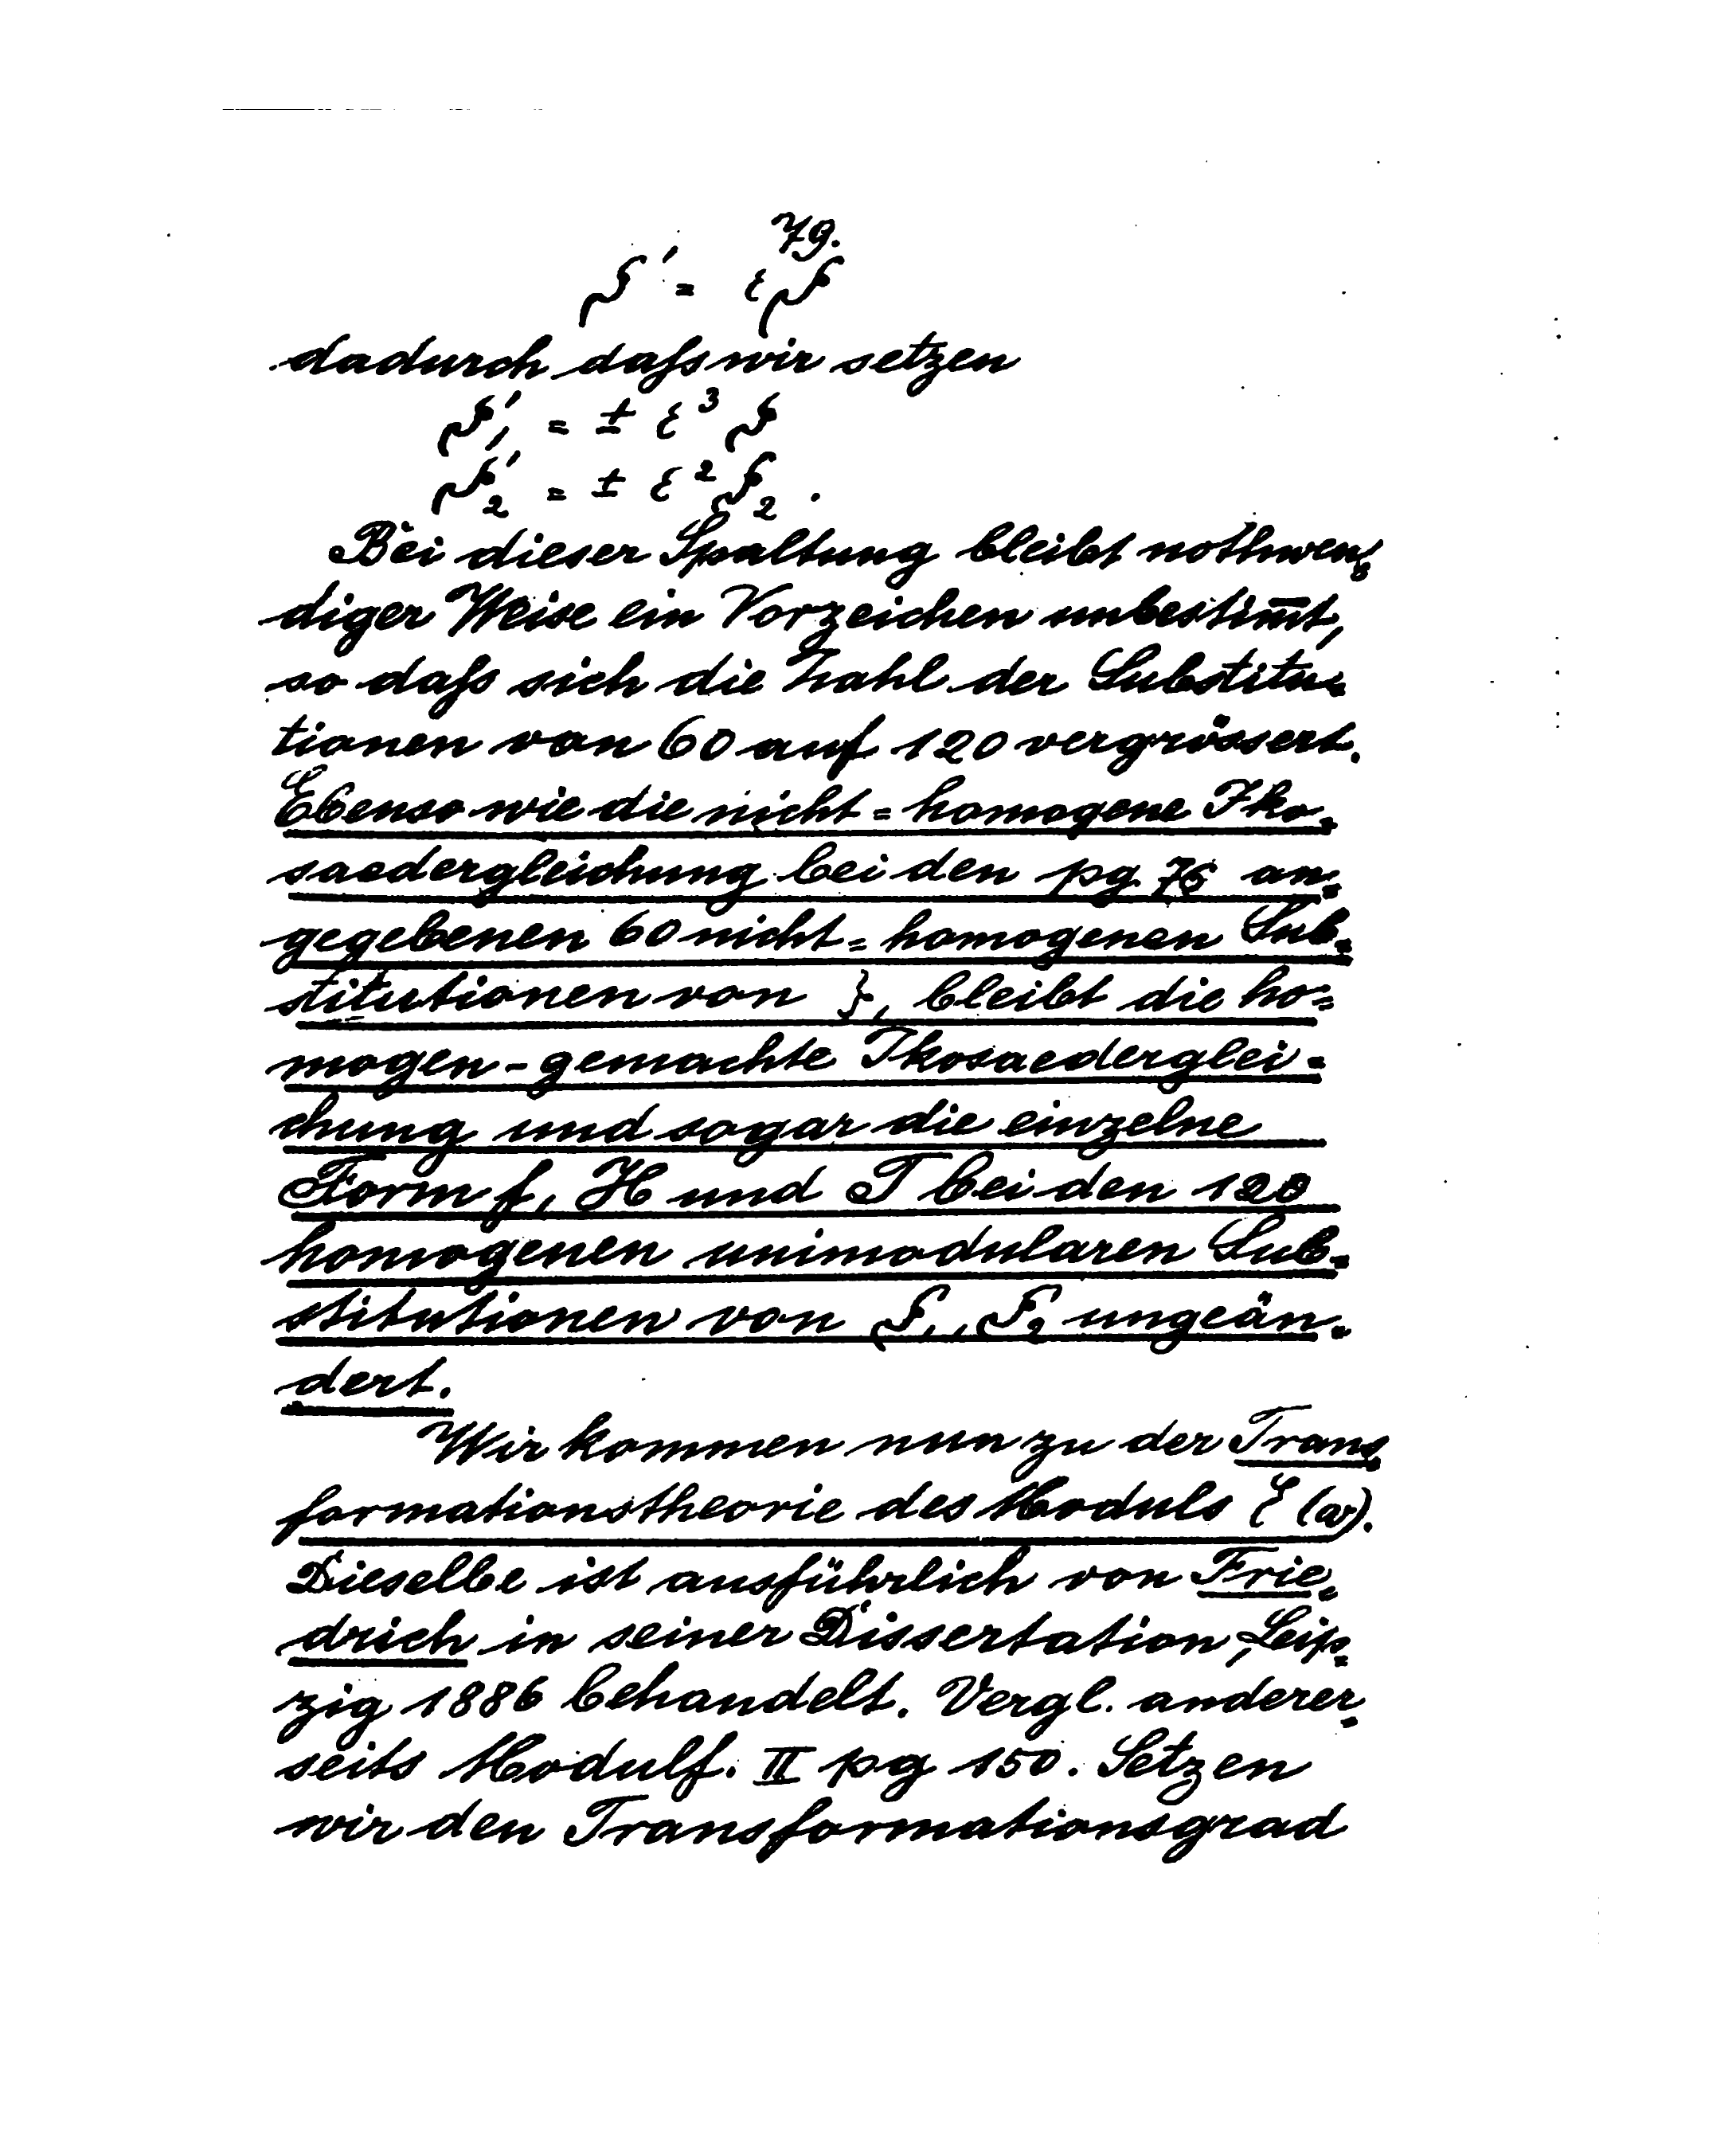 79.
ζ' = εζ
dadurch daſs wir setzen
ζ'₁ = ± ε³ ζ
ζ'₂ = ± ε² ζ₂.
Bei dieser Spaltung bleibt nothwen=
diger Weise ein Vorzeichen unbestim̅t,
so daſs sich die Zahl der Substitu=
tionen von 60 auf 120 vergrössert.
Ebenso wie die nicht=homogene Iko=
saedergleichung bei den pg. 76 an=
gegebenen 60 nicht=homogenen Sub=
stitutionen von ζ, bleibt die ho=
mogen-gemachte Ikosaederglei=
chung und sogar die einzelne
Form f, H und T bei den 120
homogenen unimodularen Sub=
stitutionen von ζ₁, ζ₂ ungeän=
dert.
Wir kommen nun zu der Trans=
formationstheorie des Moduls ζ(ω).
Dieselbe ist ausführlich von Frie=
drich in seiner Dissertation, Leip=
zig 1886 behandelt. Vergl. anderer=
seits Modulf. II pg 150. Setzen
wir den Transformationsgrad